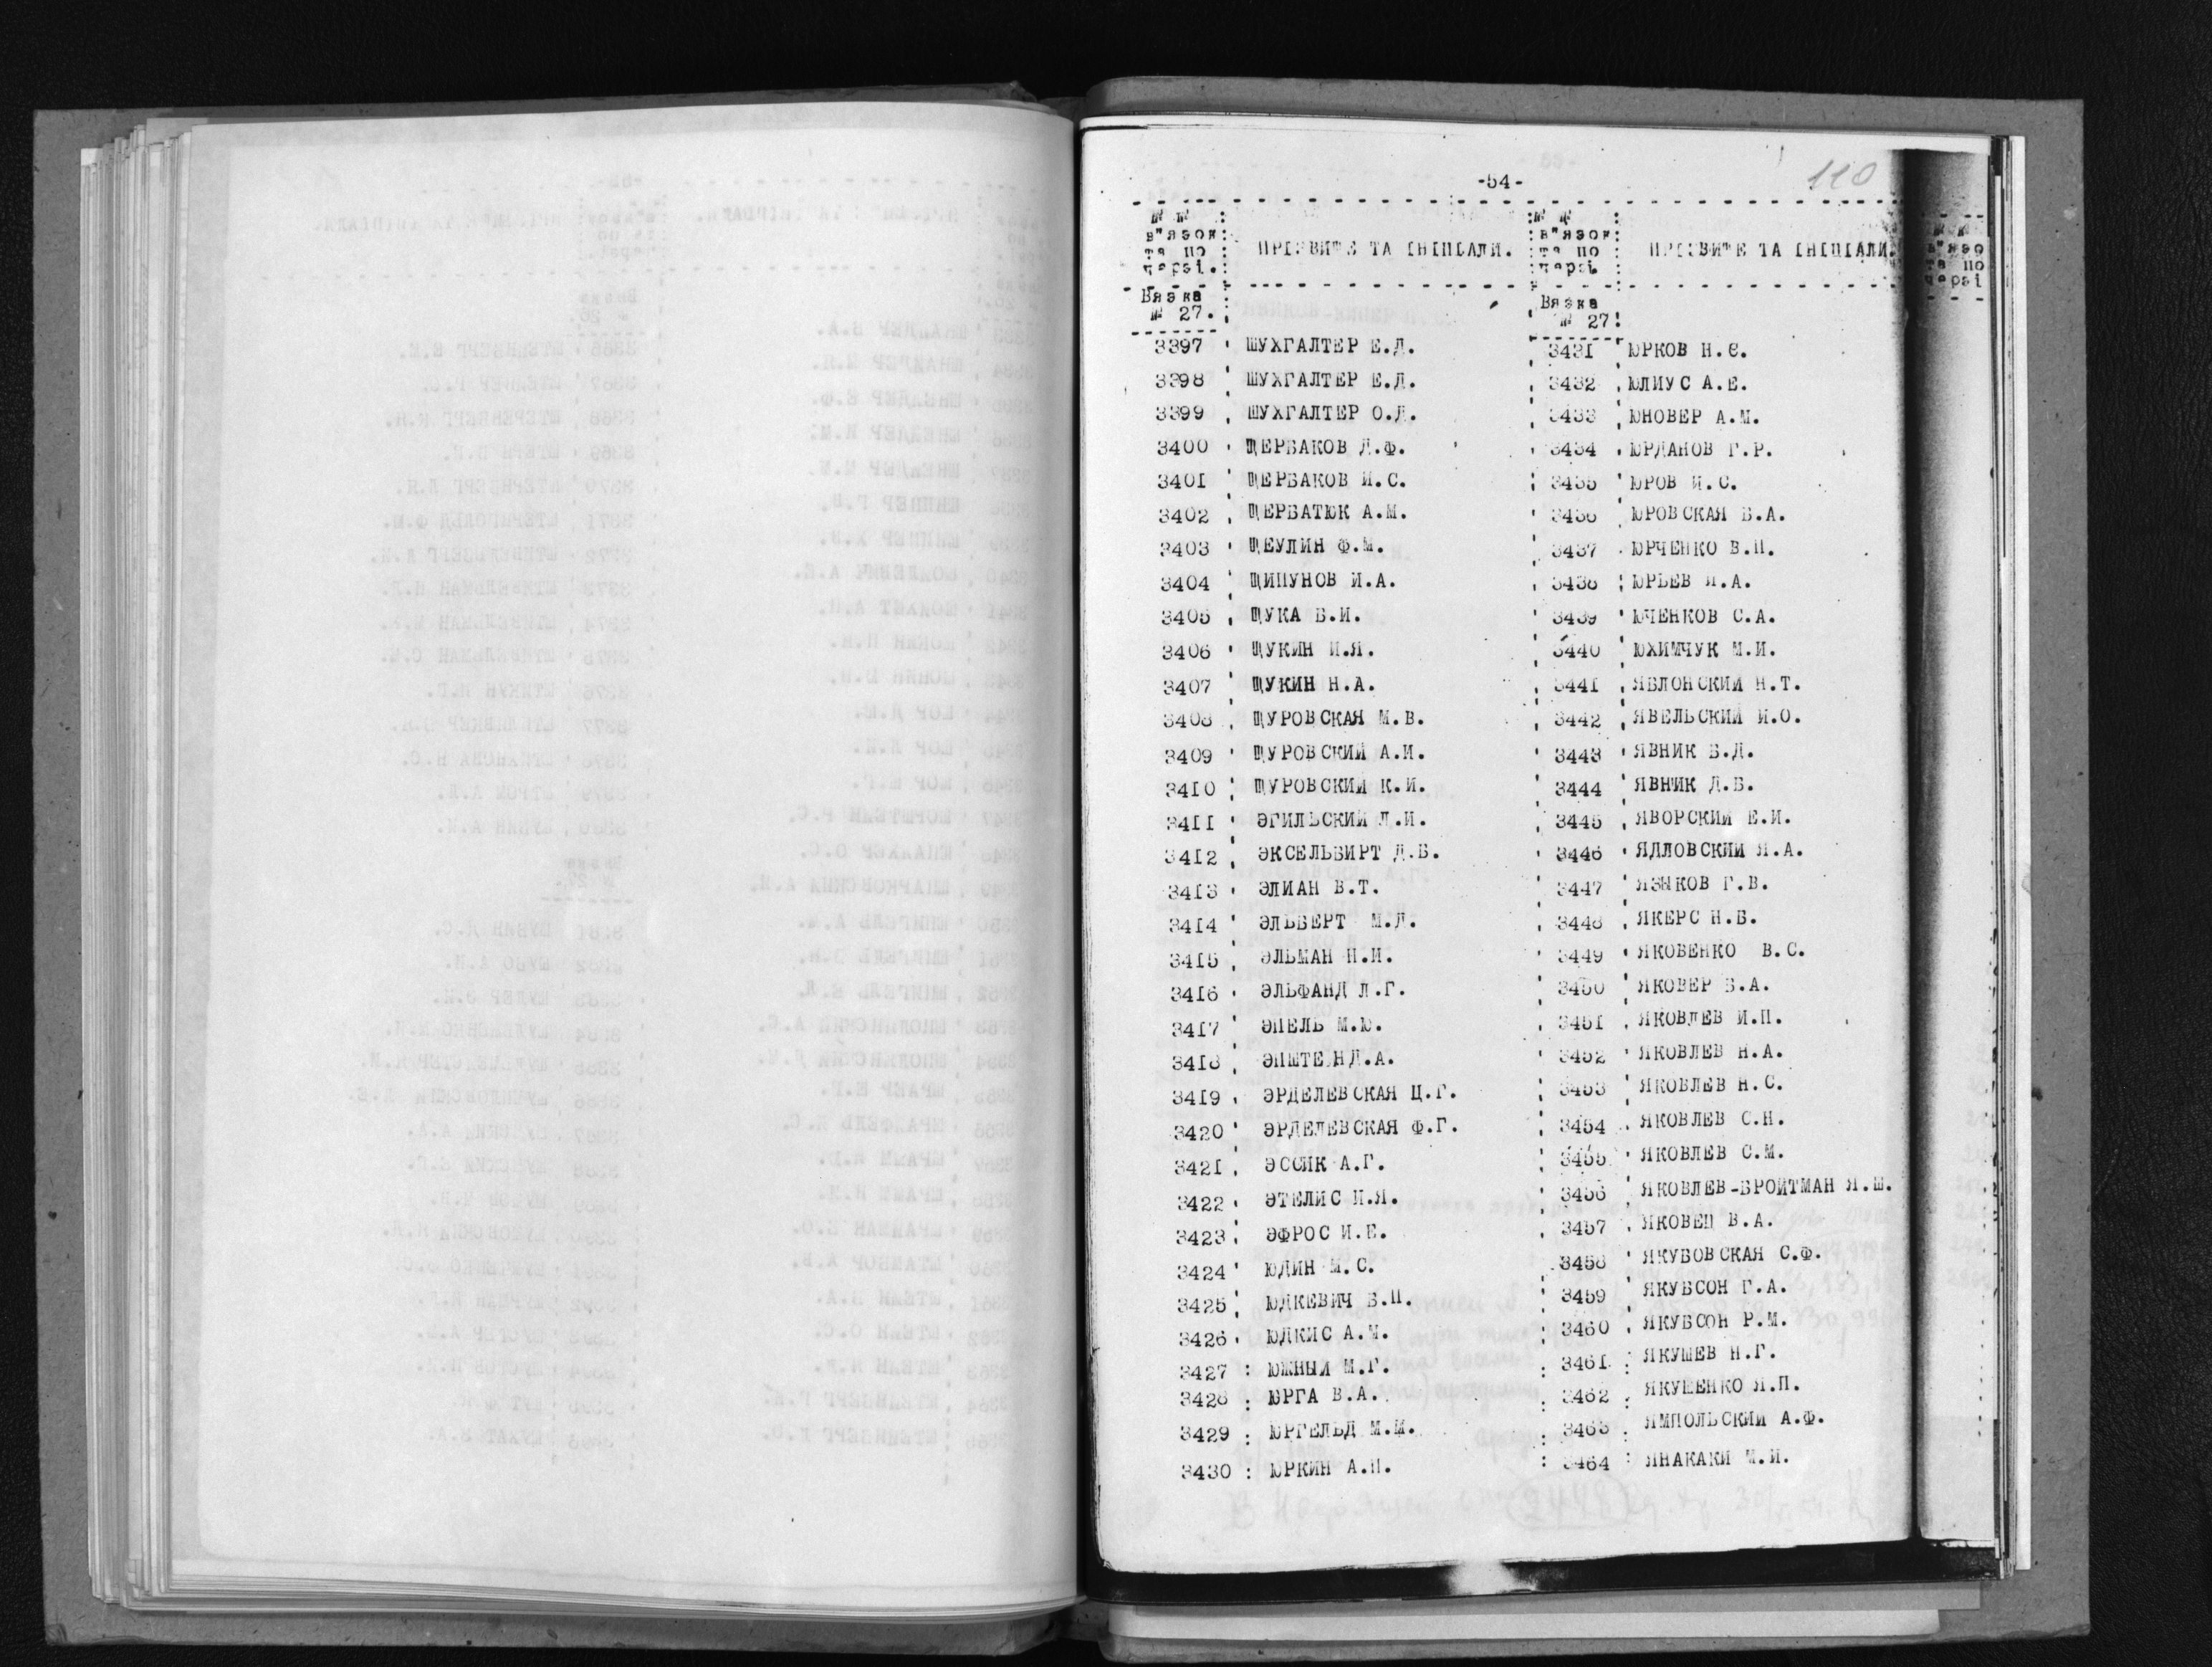 -54-
110
№ №
в"язок
та по
черзі.
ПРІЗВИЩЕ ТА ІНІЦІАЛИ.
Вязка
№ 27.
3397 ШУХГАЛТЕР Е.Д.
3398 ШУХГАЛТЕР Е.Д.
3399 ШУХГАЛТЕР О.Д.
3400 ЩЕРБАКОВ Д.Ф.
3401 ЩЕРБАКОВ И.С.
3402 ЩЕРБАТЮК А.М.
3403 ЩЕУЛИН Ф.М.
3404 ЩИПУНОВ И.А.
3405 ЩУКА Б.И.
3406 ЩУКИН И.Я.
3407 ЩУКИН Н.А.
3408 ЩУРОВСКАЯ М.В.
3409 ЩУРОВСКИЙ А.И.
3410 ЩУРОВСКИЙ К.И.
3411 ЭГИЛЬСКИЙ Л.И.
3412 ЭКСЕЛЬБИРТ Д.Б.
3413 ЭЛИАН В.Т.
3414 ЭЛЬБЕРТ М.Л.
3415 ЭЛЬМАН Н.И.
3416 ЭЛЬФАНД Л.Г.
3417 ЭПЕЛЬ М.Ю.
3418 ЭПШТЕЙН Д.А.
3419 ЭРДЕЛЕВСКАЯ Ц.Г.
3420 ЭРДЕЛЕВСКАЯ Ф.Г.
3421 ЭССИК А.Г.
3422 ЭТЕЛИС И.Я.
3423 ЭФРОС И.Е.
3424 ЮДИН М.С.
3425 ЮДКЕВИЧ Б.П.
3426 ЮДКИС А.М.
3427 ЮЖНЫЙ М.Г.
3428 ЮРГА В.А.
3429 ЮРГЕЛЬД М.М.
3430 ЮРКИН А.П.
№ №
в"язок
та по
черзі.
ПРІЗВИЩЕ ТА ІНІЦІАЛИ.
Вязка
№ 27
3431 ЮРКОВ Н.Є.
3432 ЮЛИУС А.Е.
3433 ЮНОВЕР А.М.
3434 ЮРДАНОВ Г.Р.
3435 ЮРОВ И.С.
3436 ЮРОВСКАЯ Б.А.
3437 ЮРЧЕНКО В.П.
3438 ЮРЬЕВ Я.А.
3439 ЮЧЕНКОВ С.А.
3440 ЮХИМЧУК М.И.
3441 ЯБЛОНСКИЙ Н.Т.
3442 ЯВЕЛЬСКИЙ И.О.
3443 ЯВНИК Б.Д.
3444 ЯВНИК Д.Б.
3445 ЯВОРСКИЙ Е.И.
3446 ЯДЛОВСКИЙ Я.А.
3447 ЯЗЫКОВ Г.В.
3448 ЯКЕРС Н.Б.
3449 ЯКОВЕНКО В.С.
3450 ЯКОВЕР Б.А.
3451 ЯКОВЛЕВ И.П.
3452 ЯКОВЛЕВ Н.А.
3453 ЯКОВЛЕВ Н.С.
3454 ЯКОВЛЕВ С.Н.
3455 ЯКОВЛЕВ С.М.
3456 ЯКОВЛЕВ-БРОЙТМАН Я.Ш.
3457 ЯКОВЕЦ В.А.
3458 ЯКУБОВСКАЯ С.Ф.
3459 ЯКУБСОН Г.А.
3460 ЯКУБСОН Р.М.
3461 ЯКУШЕВ Н.Г.
3462 ЯКУШЕНКО Я.П.
3463 ЯМПОЛЬСКИЙ А.Ф.
3464 ЯНАКАКИ М.И.